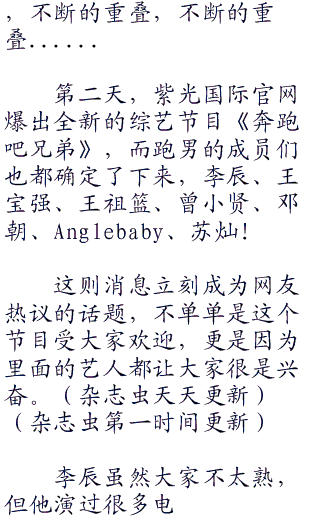 ，不断的重叠，不断的重
叠......
第二天，紫光国际官网
爆出全新的综艺节目《奔跑
吧兄弟》，而跑男的成员们
也都确定了下来，李辰、王
宝强、王祖篮、曾小贤、邓
朝、Anglebaby、苏灿！
这则消息立刻成为网友
热议的话题，不单单是这个
节目受大家欢迎，更是因为
里面的艺人都让大家很是兴
奋。（杂志虫天天更新）
（杂志虫第一时间更新）
李辰虽然大家不太熟，
但他演过很多电